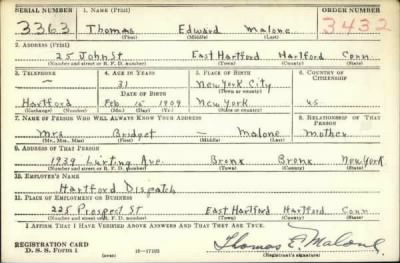 SERIAL NUMBER 1. NAME (Print) ORDER NUMBER
3363 Thomas Edward Malone 3432
(First) (Middle) (Last)
2. ADDRESS (Print)
25 John St East Hartford Hartford Conn
(Number and street or R. F. D. number) (Town) (County) (State)
3. TELEPHONE 4. AGE IN YEARS 5. PLACE OF BIRTH 6. COUNTRY OF CITIZENSHIP
— 31 New York City
DATE OF BIRTH (Town or county)
Hartford Feb 15 1909 New York US
(Exchange) (Number) (Mo.) (Day) (Yr.) (State or country)
7. NAME OF PERSON WHO WILL ALWAYS KNOW YOUR ADDRESS 8. RELATIONSHIP OF THAT PERSON
Mrs Bridget — Malone Mother
(Mr., Mrs., Miss) (First) (Middle) (Last)
9. ADDRESS OF THAT PERSON
1939 Lurting Ave Bronx Bronx New York
(Number and street or R. F. D. number) (Town) (County) (State)
10. EMPLOYER'S NAME
Hartford Dispatch
11. PLACE OF EMPLOYMENT OR BUSINESS
225 Prospect St East Hartford Hartford Conn
(Number and street or R. F. D. number) (Town) (County) (State)
I AFFIRM THAT I HAVE VERIFIED ABOVE ANSWERS AND THAT THEY ARE TRUE.
REGISTRATION CARD
D. S. S. Form 1 (over) Thomas E. Malone
(Registrant's signature)